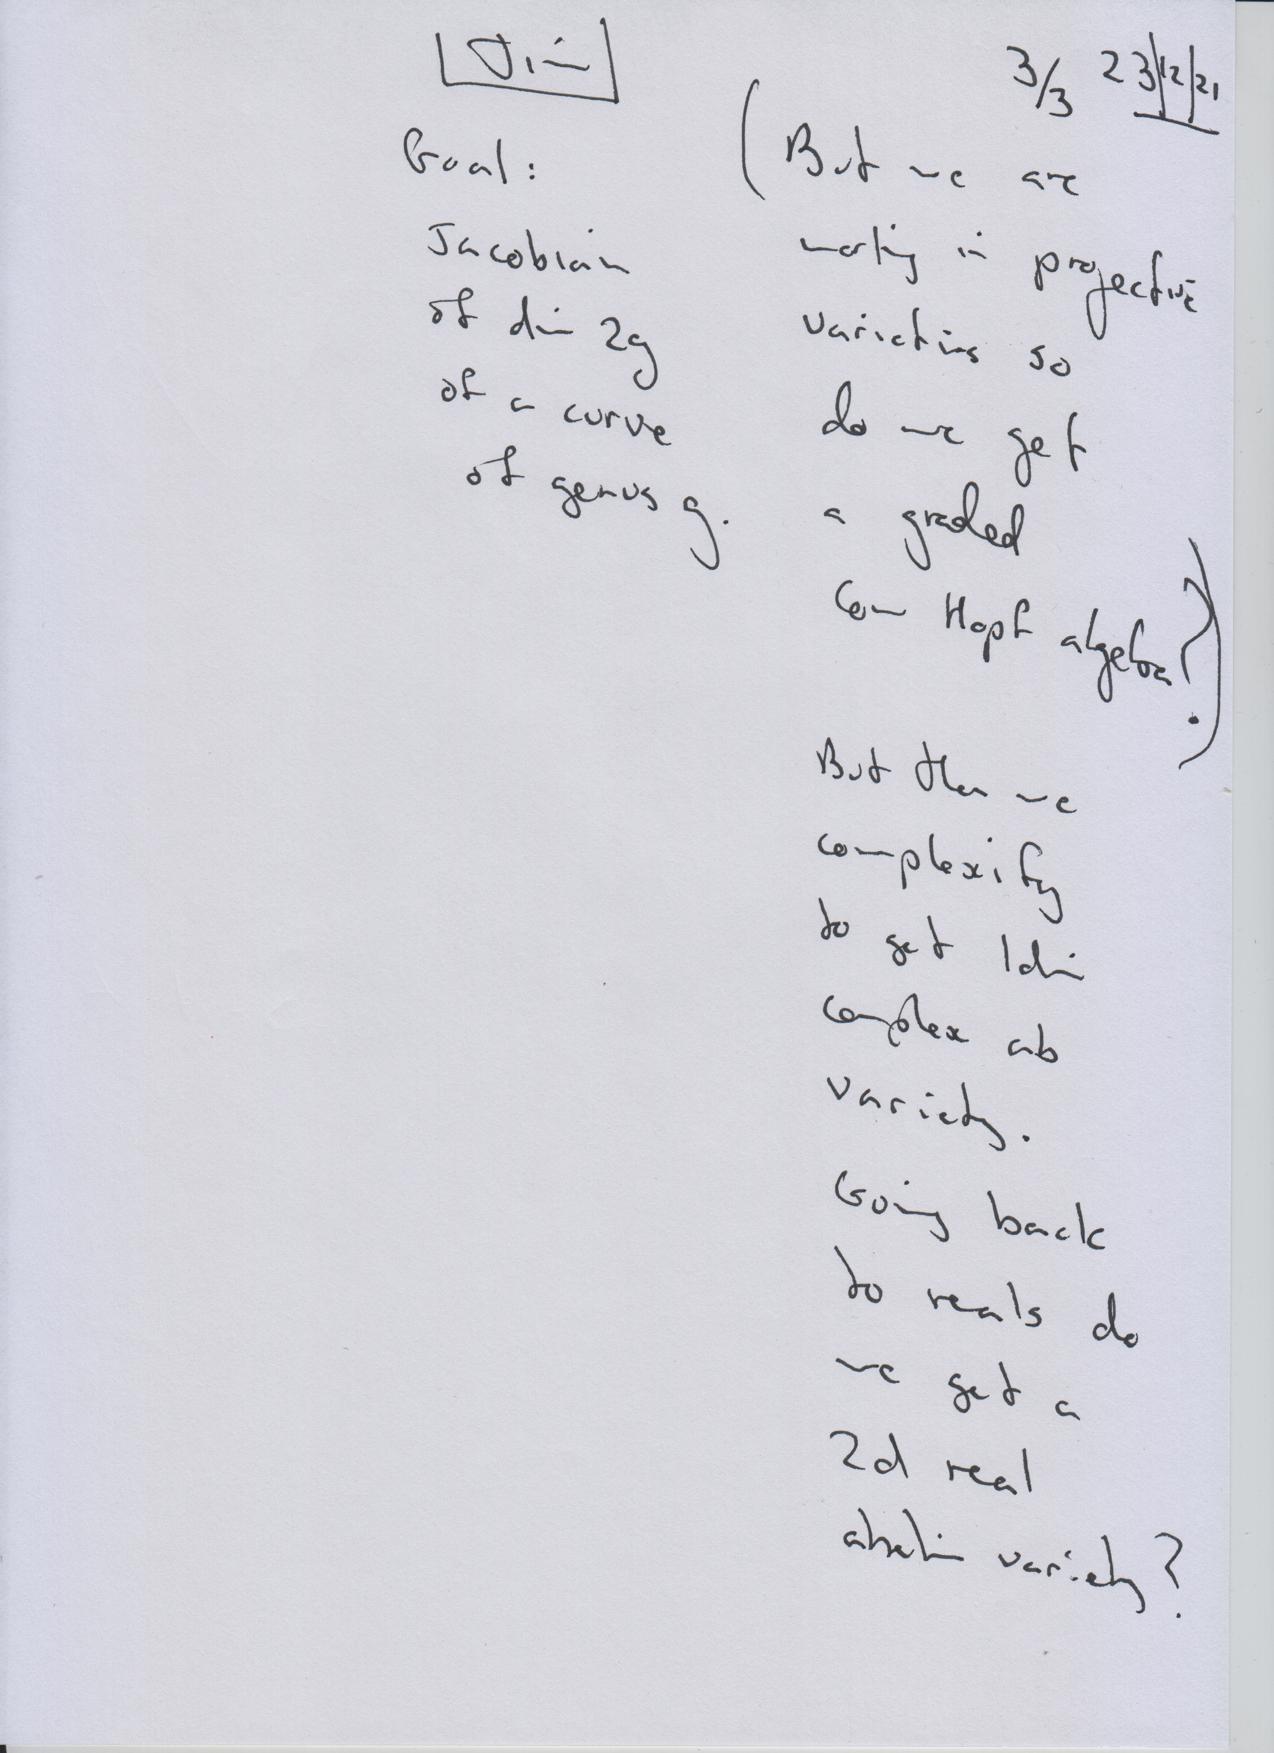 Jim
3/3 23/12/21
Goal:
Jacobian
of dim 2g
of a curve
of genus g.
(But we are
working in projective
varieties so
do we get
a graded
com Hopf algebra?)
But then we
complexify
to get 1dim
complex ab
variety.
Going back
to reals do
we get a
2d real
abelian variety?